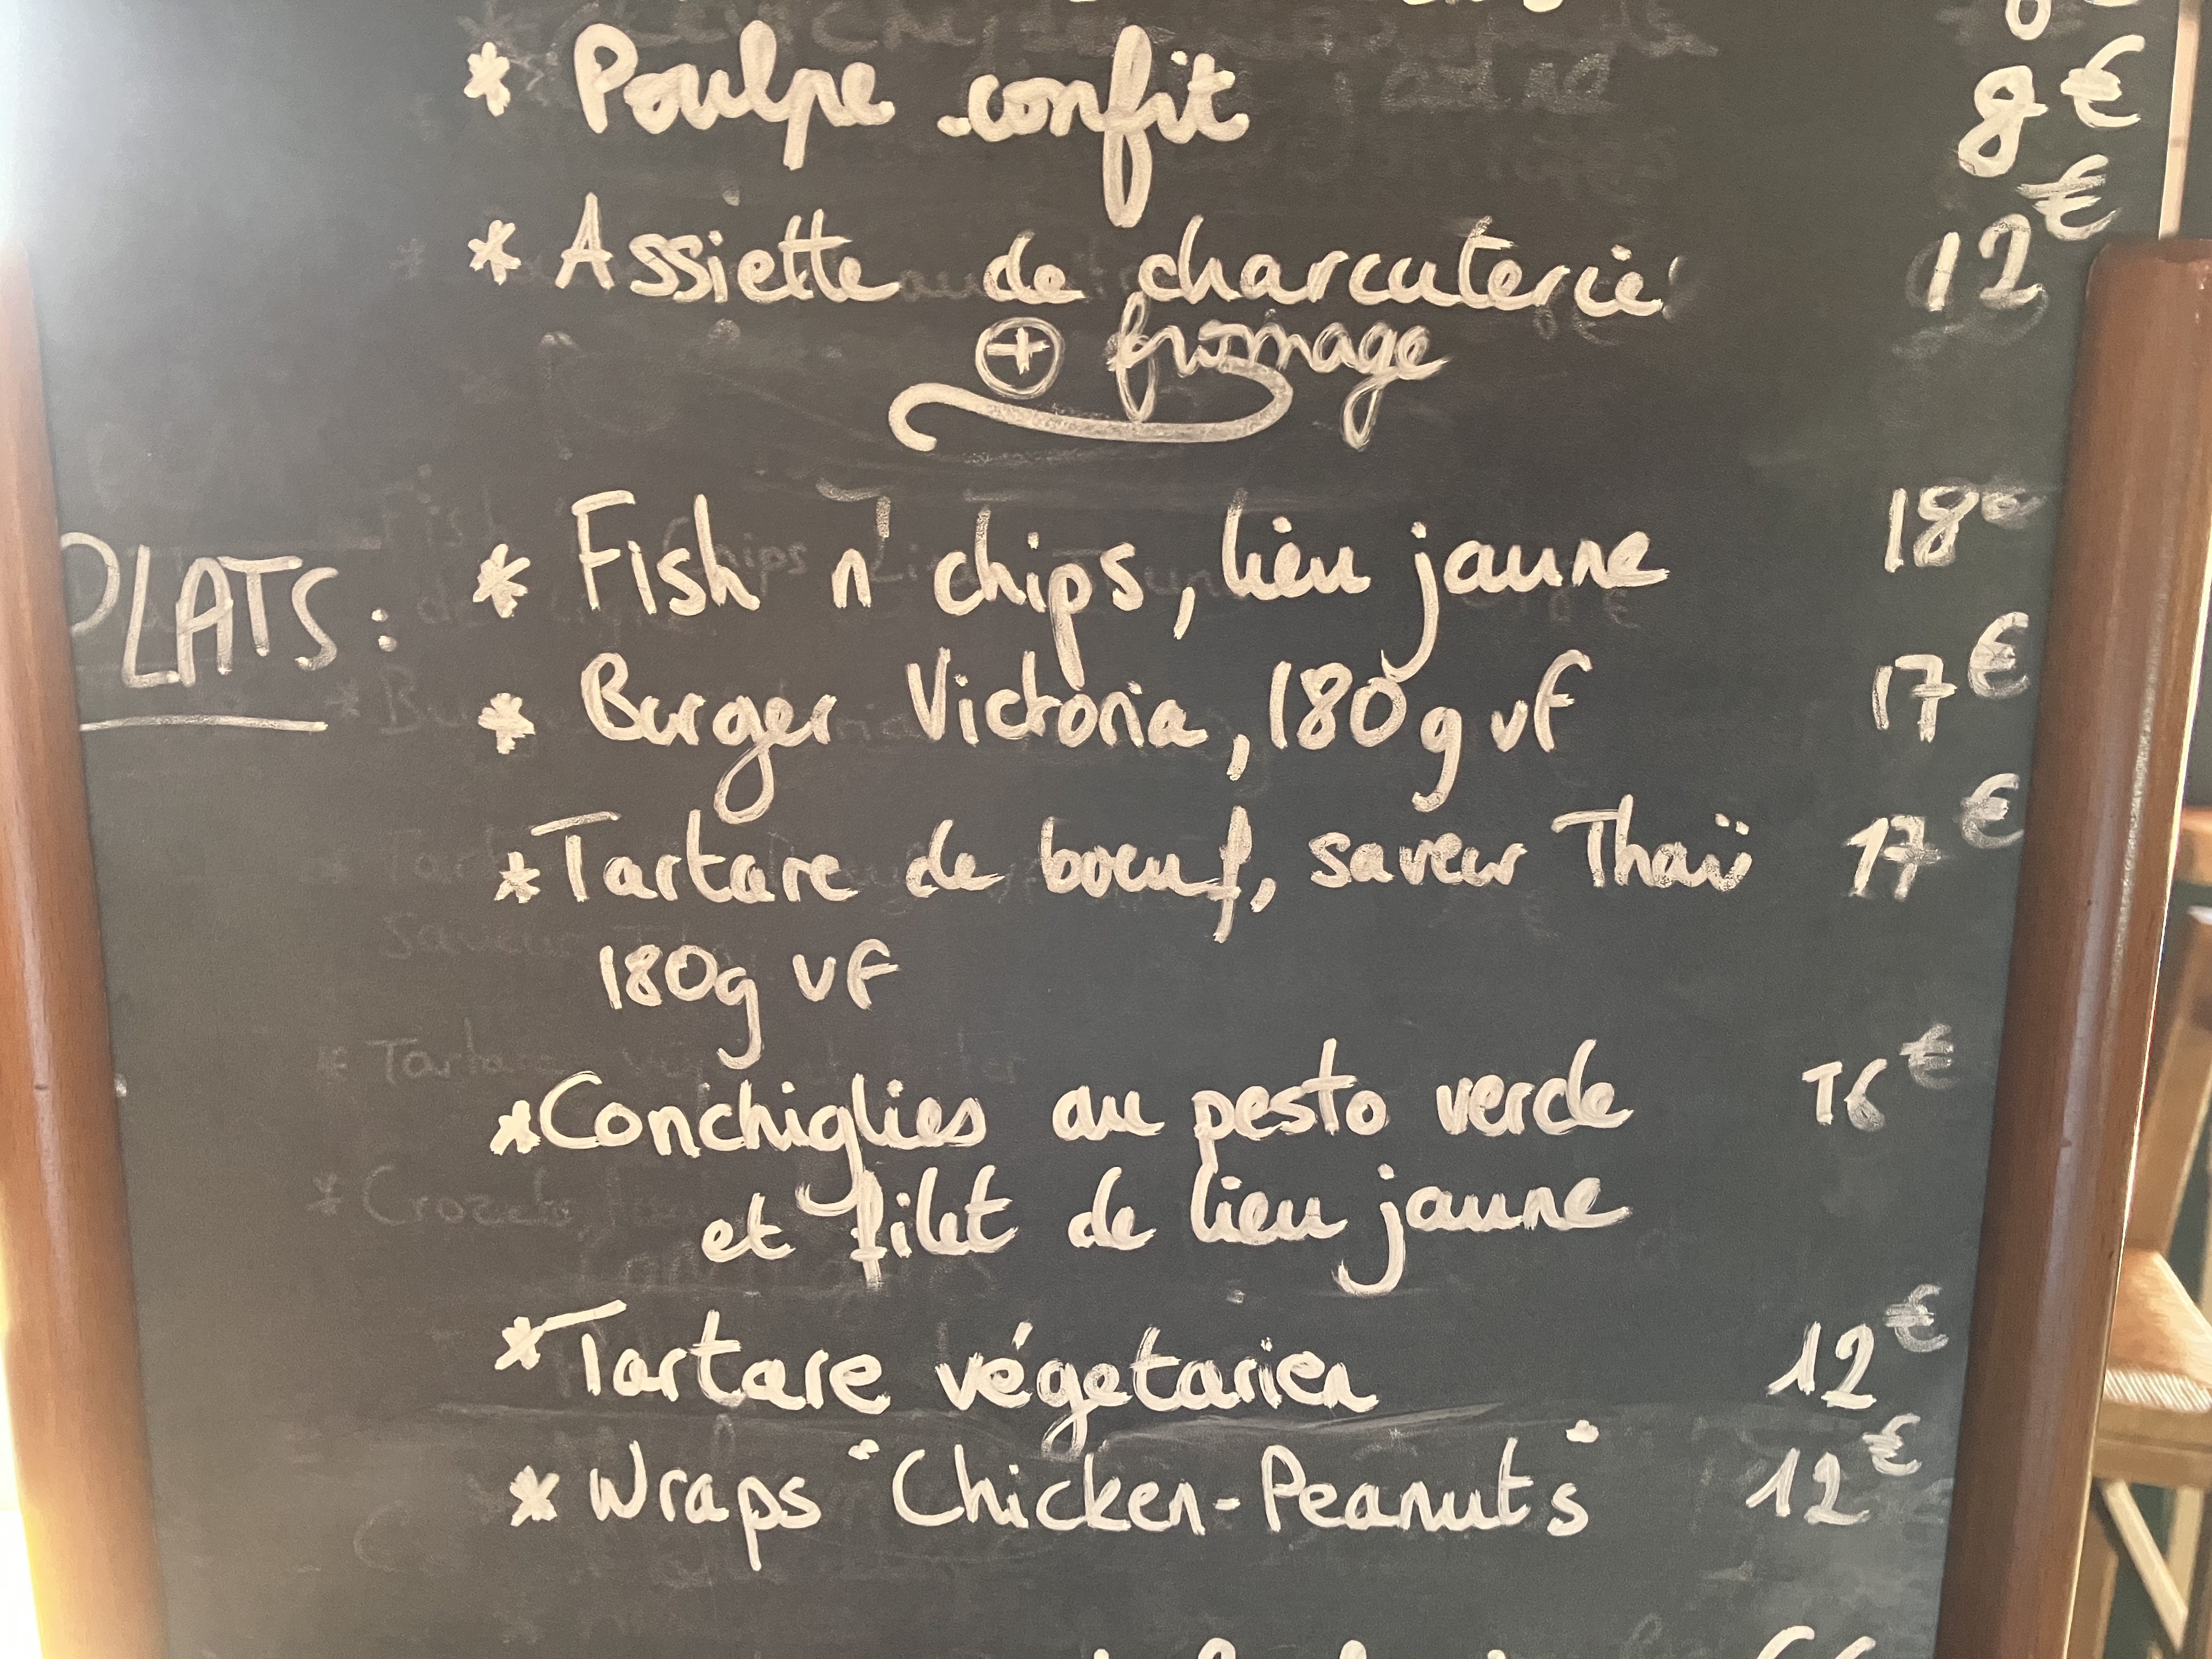 * Poulpe confit 8€
* Assiette de charcuterie 12€
+ fromage
PLATS : * Fish n' chips, lieu jaune 18€
* Burger Victoria, 180g vf 17€
* Tartare de boeuf, saveur Thaï 17€
180g vf
* Conchiglies au pesto verde 16€
et filet de lieu jaune
* Tartare végetarien 12€
* Wraps "Chicken-Peanuts" 12€